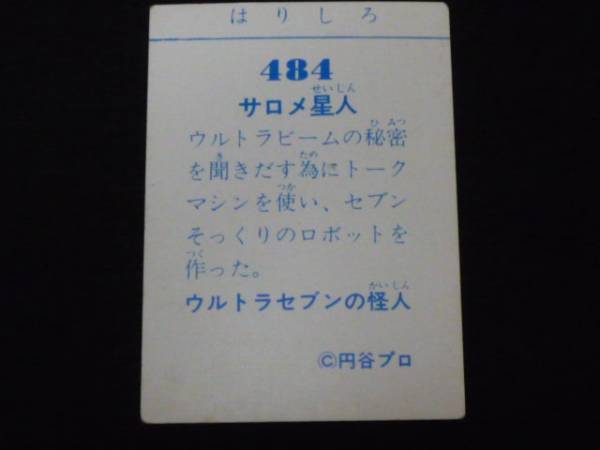 はりしろ
484
サロメ星人
ウルトラビームの秘密
を聞きだす為にトーク
マシンを使い、セブン
そっくりのロボットを
作った。
ウルトラセブンの怪人
©円谷プロ